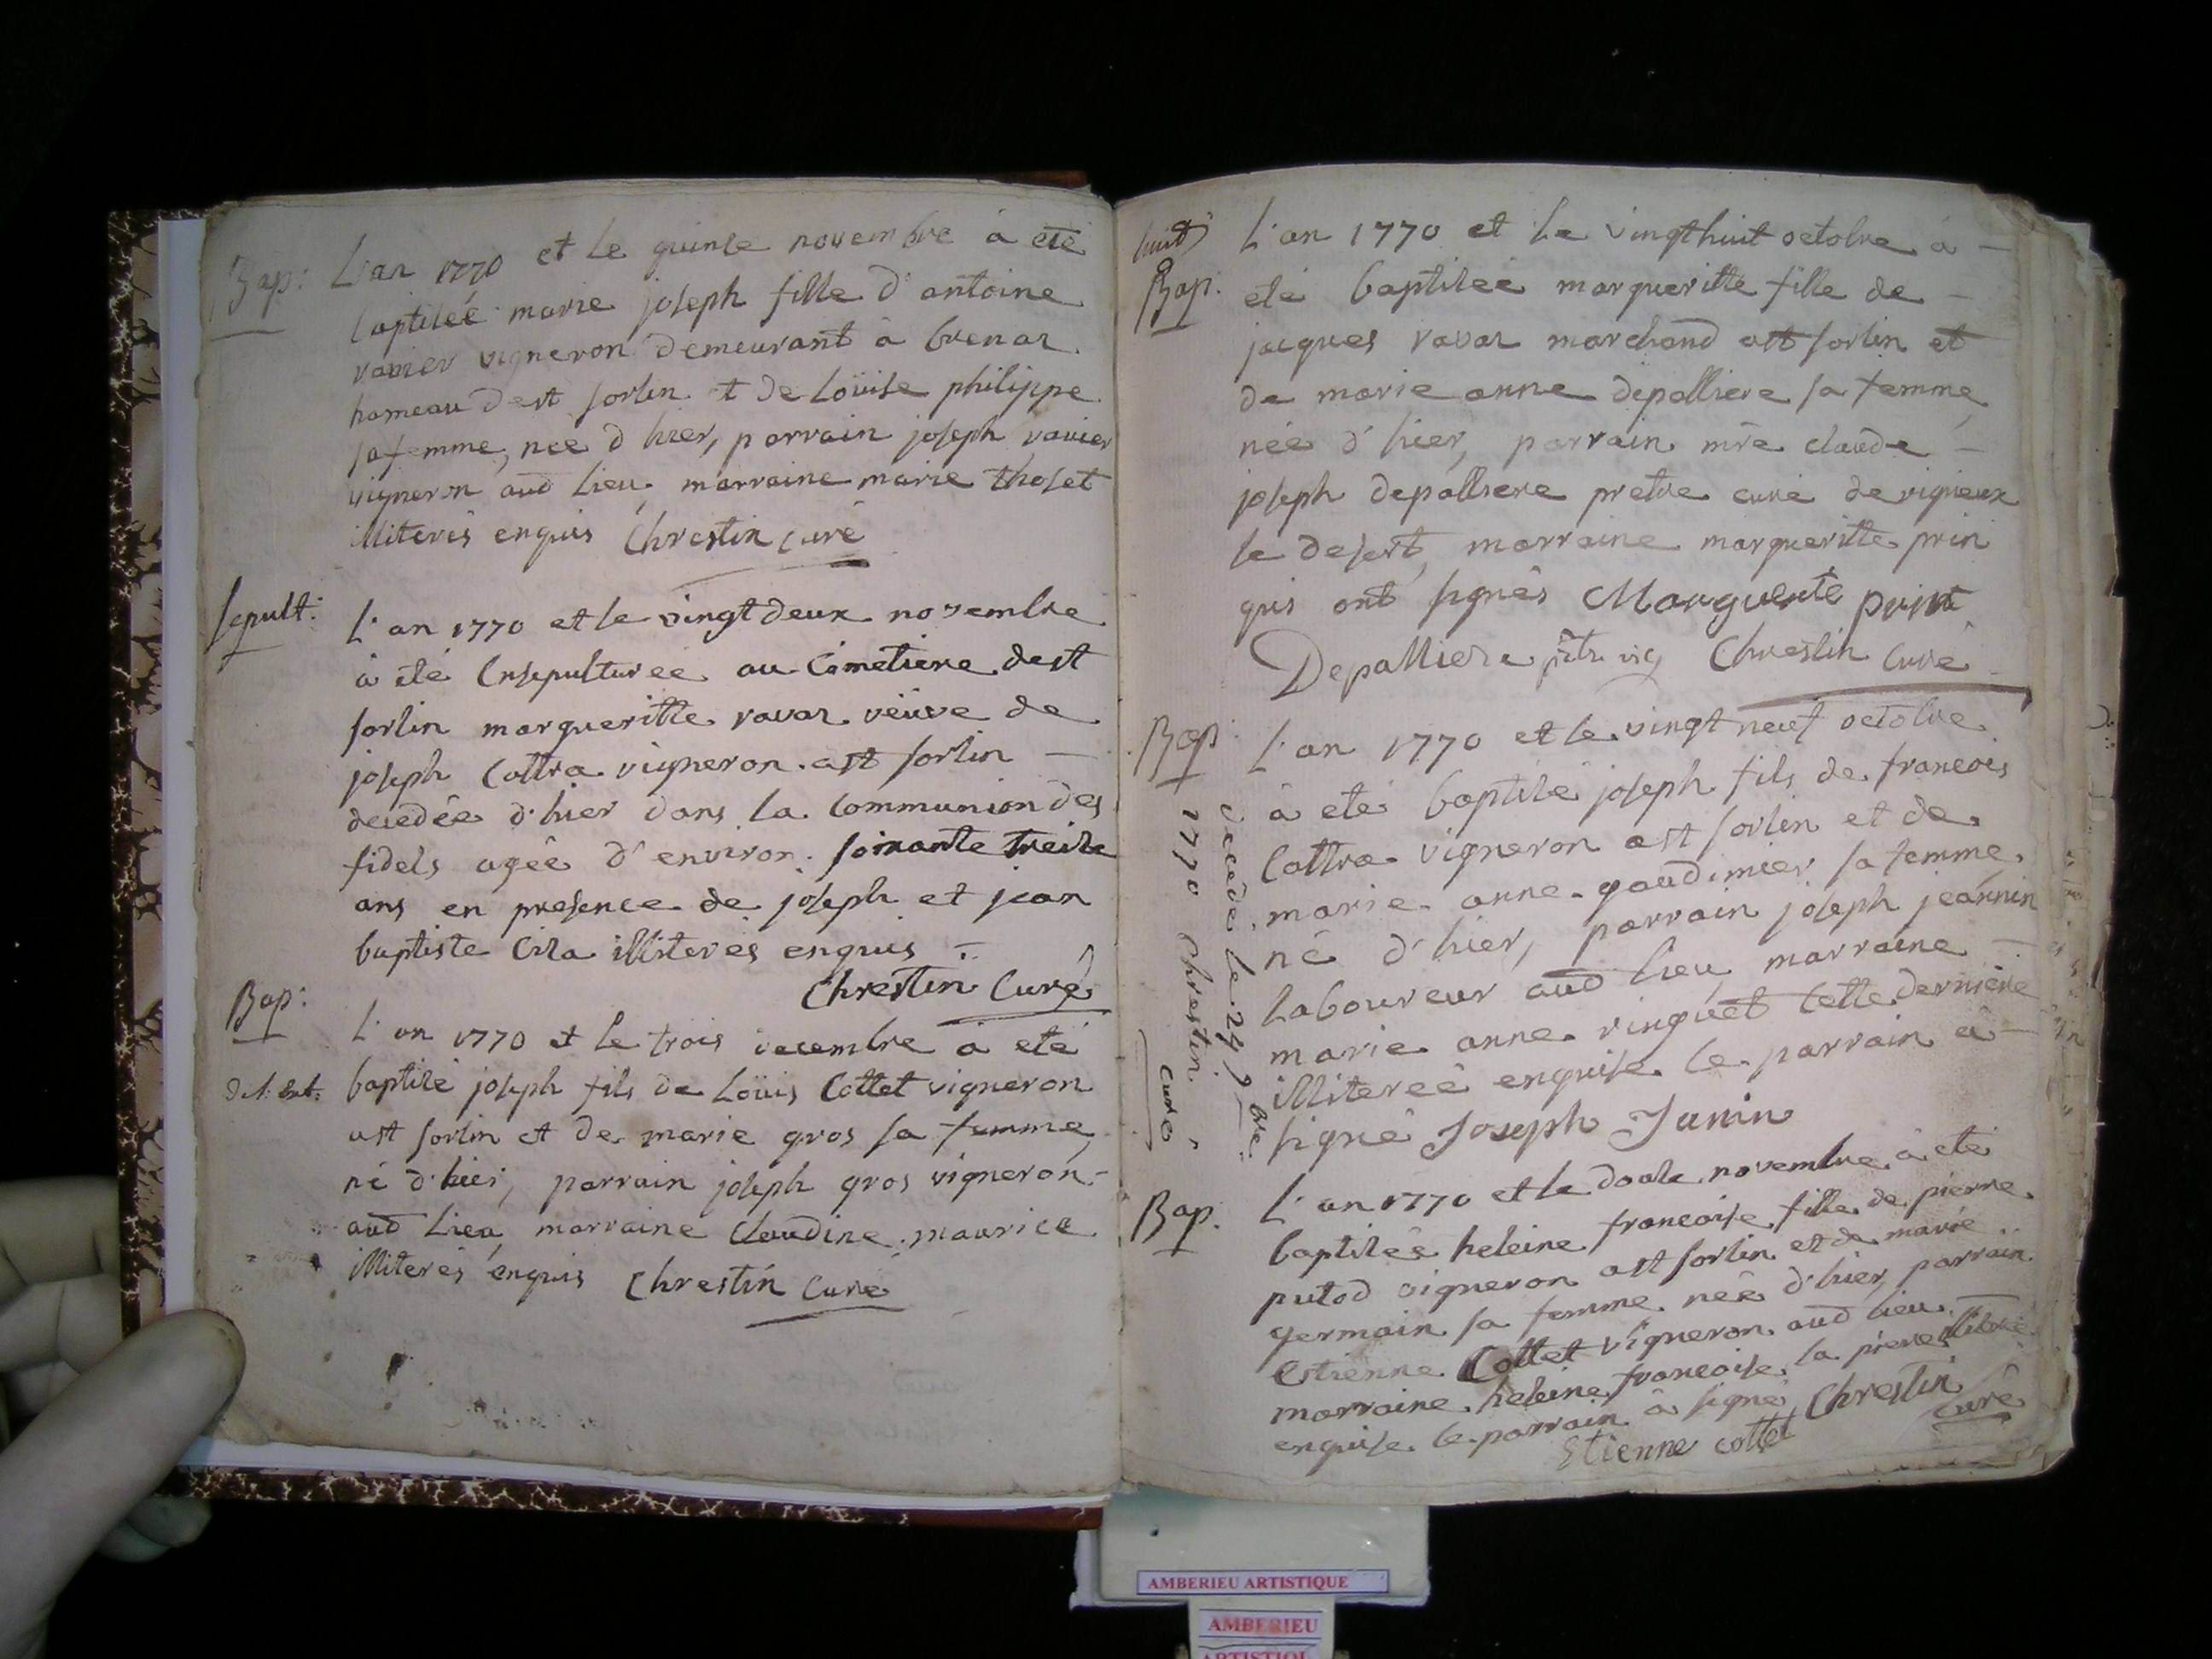 Bap: L'an 1770 et le quinse novembre à eté
baptisée marie joseph fille d'antoine
ravier vigneron demeurant à brenaz
hameau dest sorlin et de Loüise philippe
sa femme, née d'hier, parrain joseph ravier
vigneron aud lieu marraine marie thoset
illiterés enquis Chrestin curé
sepult: L'an 1770 et le vingt deux novembre
à eté Ensepulturée au Cimetiere dest
sorlin margueritte ravaz veüve de
joseph Cottra vigneron ast sorlin —
decedée d'hier dans la Communion des
fidels agée d'environ soixante treize
ans en presence de joseph et jean
baptiste illiterés enquis
Chrestin Curé
Bap: L'an 1770 et le trois decembre à eté
baptisé joseph fils de Loüis Cottet vigneron
ast sorlin et de marie gros sa femme
né d'hier, parrain joseph gros vigneron
aud lieu marraine Claudine maurice
illiterés enquis Chrestin Curé
huit
Bap. L'an 1770 et le vingthuit octobre à —
eté baptisée margueritte fille de —
jacques ravaz marchand ast sorlin et
de marie anne depalliere sa femme
née d'hier, parrain mre claude —
joseph depalliere pretre curé de vigneux
le desert, marraine margueritte prin
qui ont signés Marguerite print
Depalliere ptr. vig Chrestin Curé
Bap. L'an 1770 et le vingt neuf octobre
à eté baptisé joseph fils de francois
Cottra vigneron ast sorlin et de
marie anne gaudimier sa femme,
né d'hier, parrain joseph jeannin
Laboureur aud lieu, marraine —
marie anne vinguet cette derniere
illiterée enquise le parrain à —
signé Joseph Janin
decedé le 24 9bre
1770 Chrestin
curé
Bap. L'an 1770 et le douze novembre à eté
baptisée heleine francoise fille de pierre
putod vigneron ast sorlin et de marie
germain sa femme née d'hier, parrain
Estienne Cottet vigneron aud lieu —
marraine heleine francoise la
enquise le parrain à signé Chrestin
curé
Etienne cottet
AMBERIEU ARTISTIQUE
AMBERIEU
ARTISTIQUE